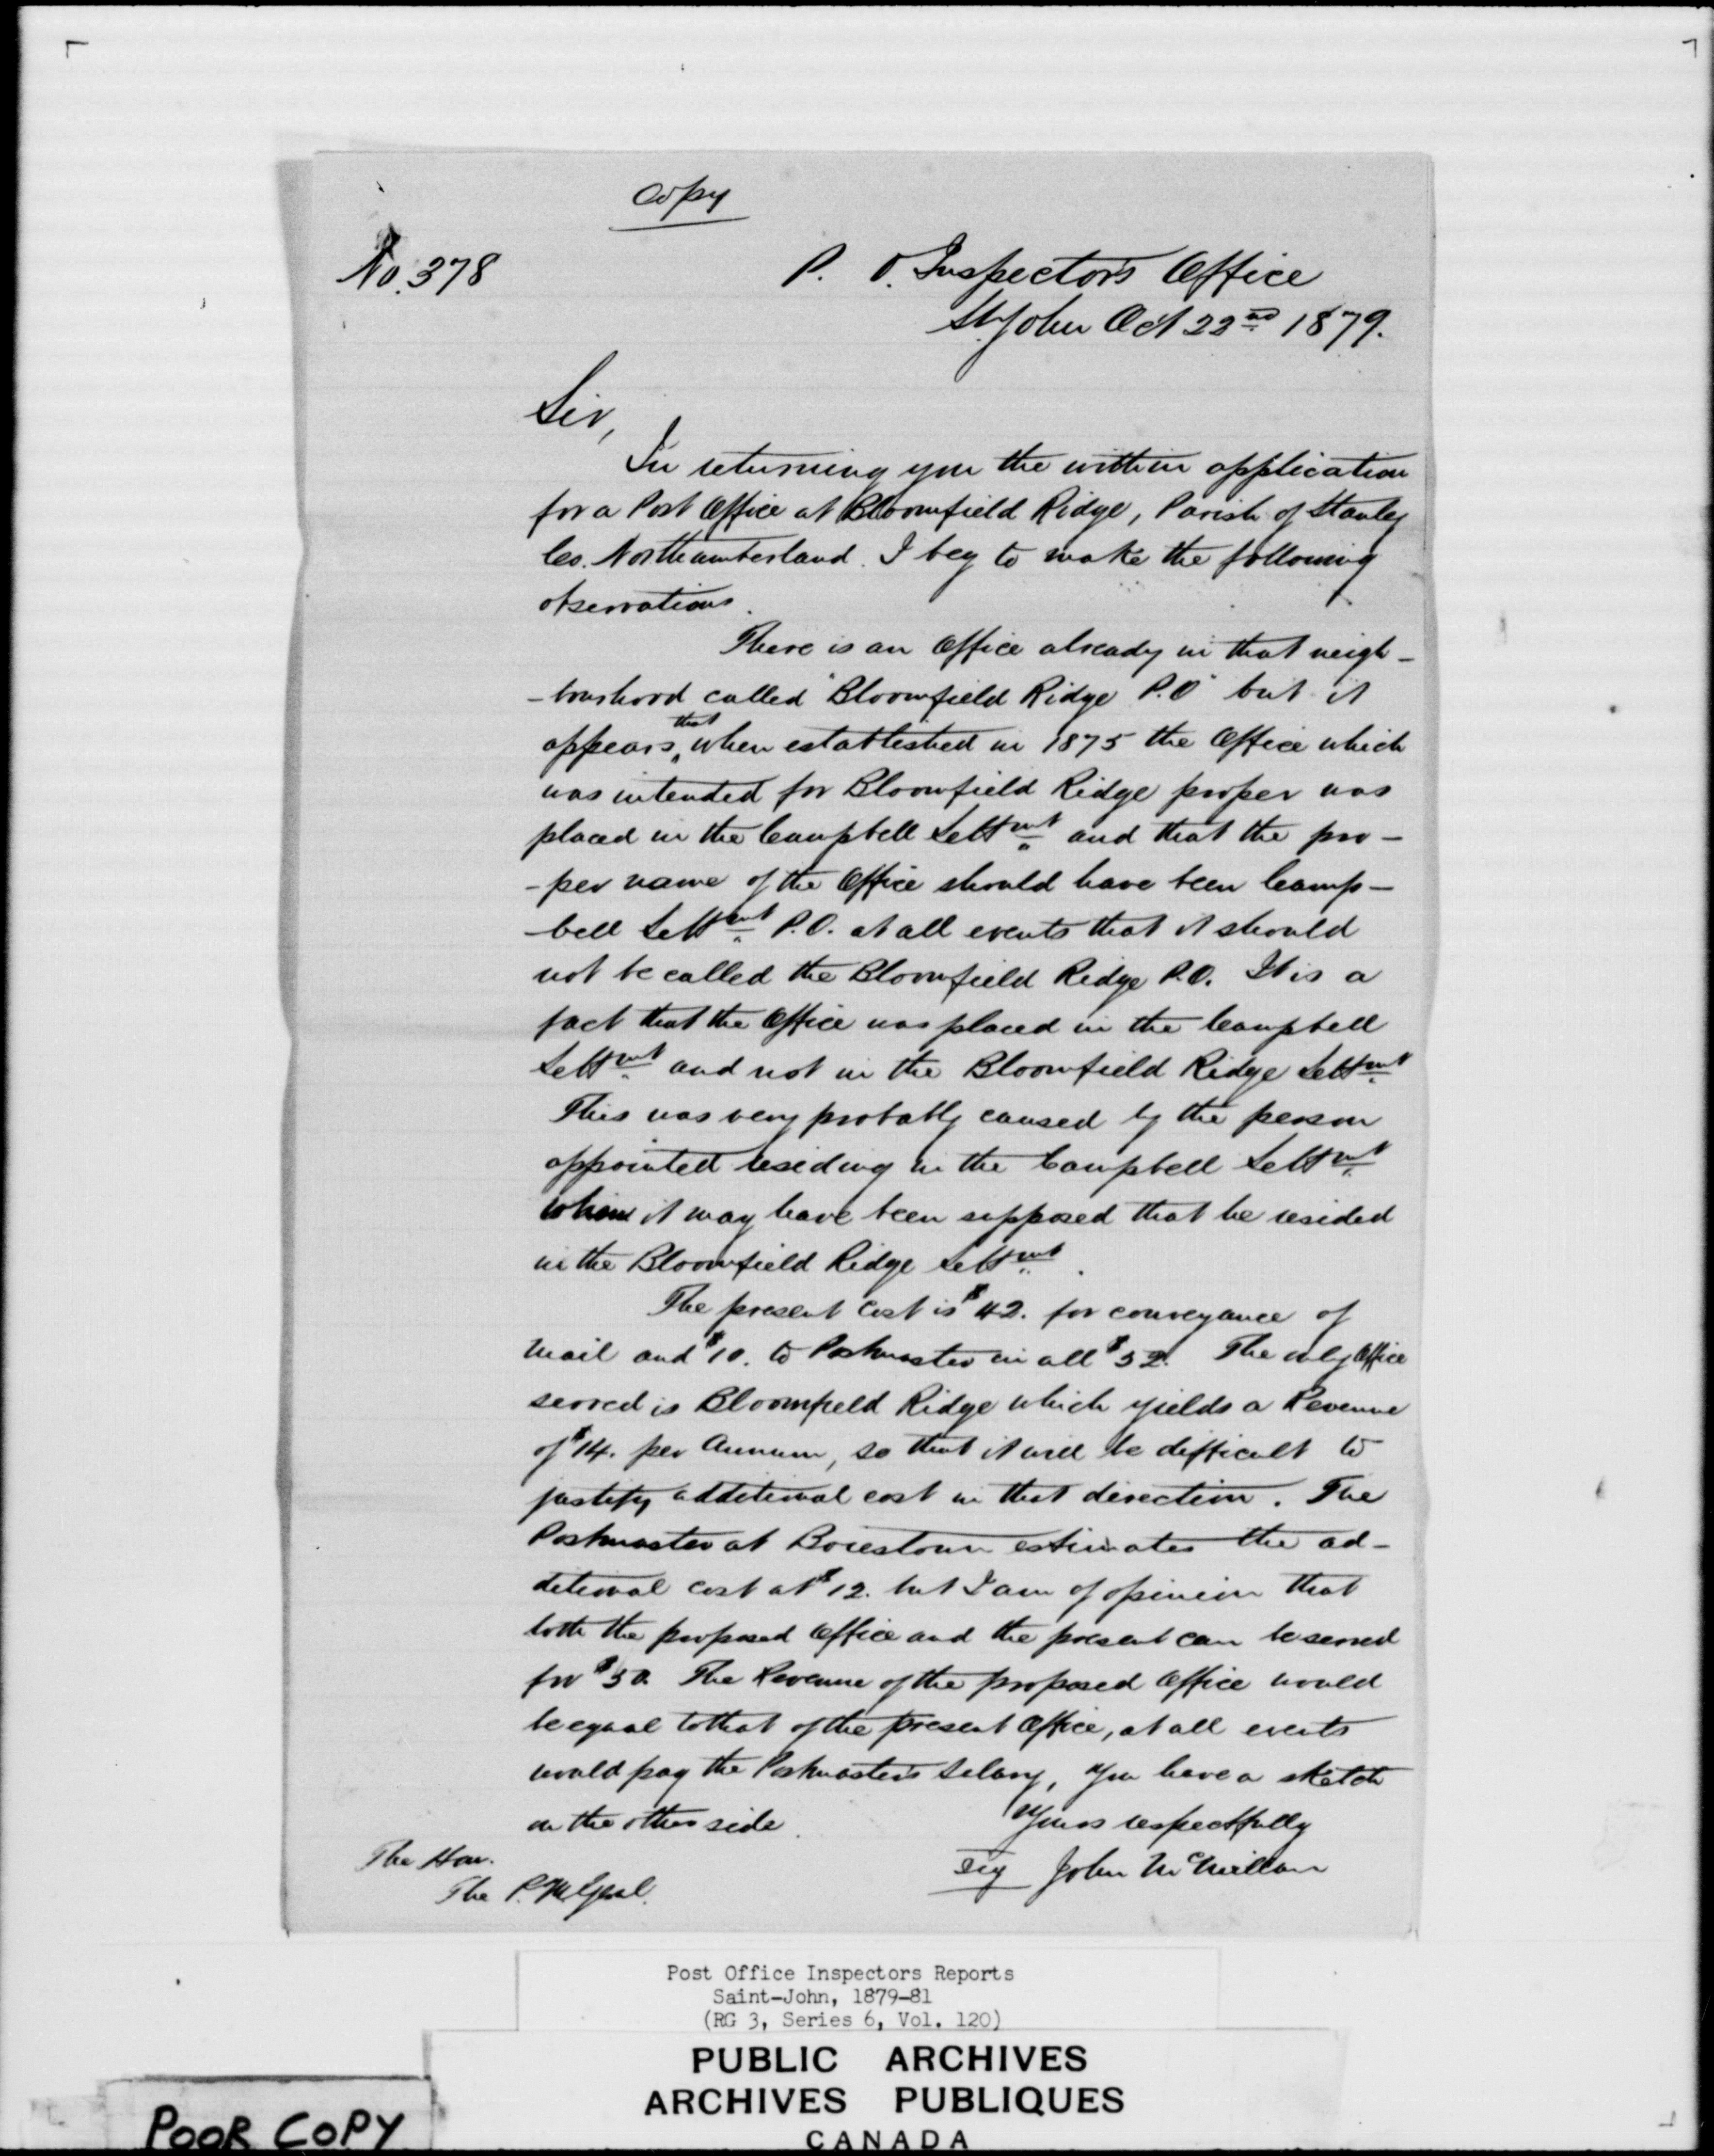 Copy
No. 378
P. O. Inspector's Office
St. John Oct 22nd 1879.
Sir,
In returning you the within application
for a Post Office at Bloomfield Ridge, Parish of Stanley
Co. Northumberland. I beg to make the following
observations.
There is an Office already in that neigh-
-bourhood called "Bloomfield Ridge P.O" but it
appears that when established in 1875 the Office which
was intended for Bloomfield Ridge proper was
placed in the Campbell Settmt and that the pro-
-per name of the Office should have been Camp-
-bell Settmt P.O. at all events that it should
not be called the Bloomfield Ridge P.O. It is a
fact that the Office was placed in the Campbell
Settmt and not in the Bloomfield Ridge Settmt
This was very probably caused by the person
appointed residing in the Campbell Settmt
it may have been supposed that he resided
in the Bloomfield Ridge Settmt.
The present cost is $42. for conveyance of
Mail and $10. to Postmaster in all $52. The only Office
served is Bloomfield Ridge which yields a Revenue
of $14. per Annum, so that it will be difficult to
justify additional cost in that direction. The
Postmaster at Boiestown estimates the ad-
ditional cost at $12. but I am of opinion that
both the proposed Office and the present can be served
for $50. The Revenue of the proposed Office would
be equal to that of the present Office, at all events
would pay the Postmaster's Salary, You have a sketch
on the other side.
Yours respectfully
Sig John McMillan
The Hon.
The P. M. Genl.
Post Office Inspectors Reports
Saint-John, 1879-81
(RG 3, Series 6, Vol. 120)
PUBLIC ARCHIVES
ARCHIVES PUBLIQUES
CANADA
POOR COPY